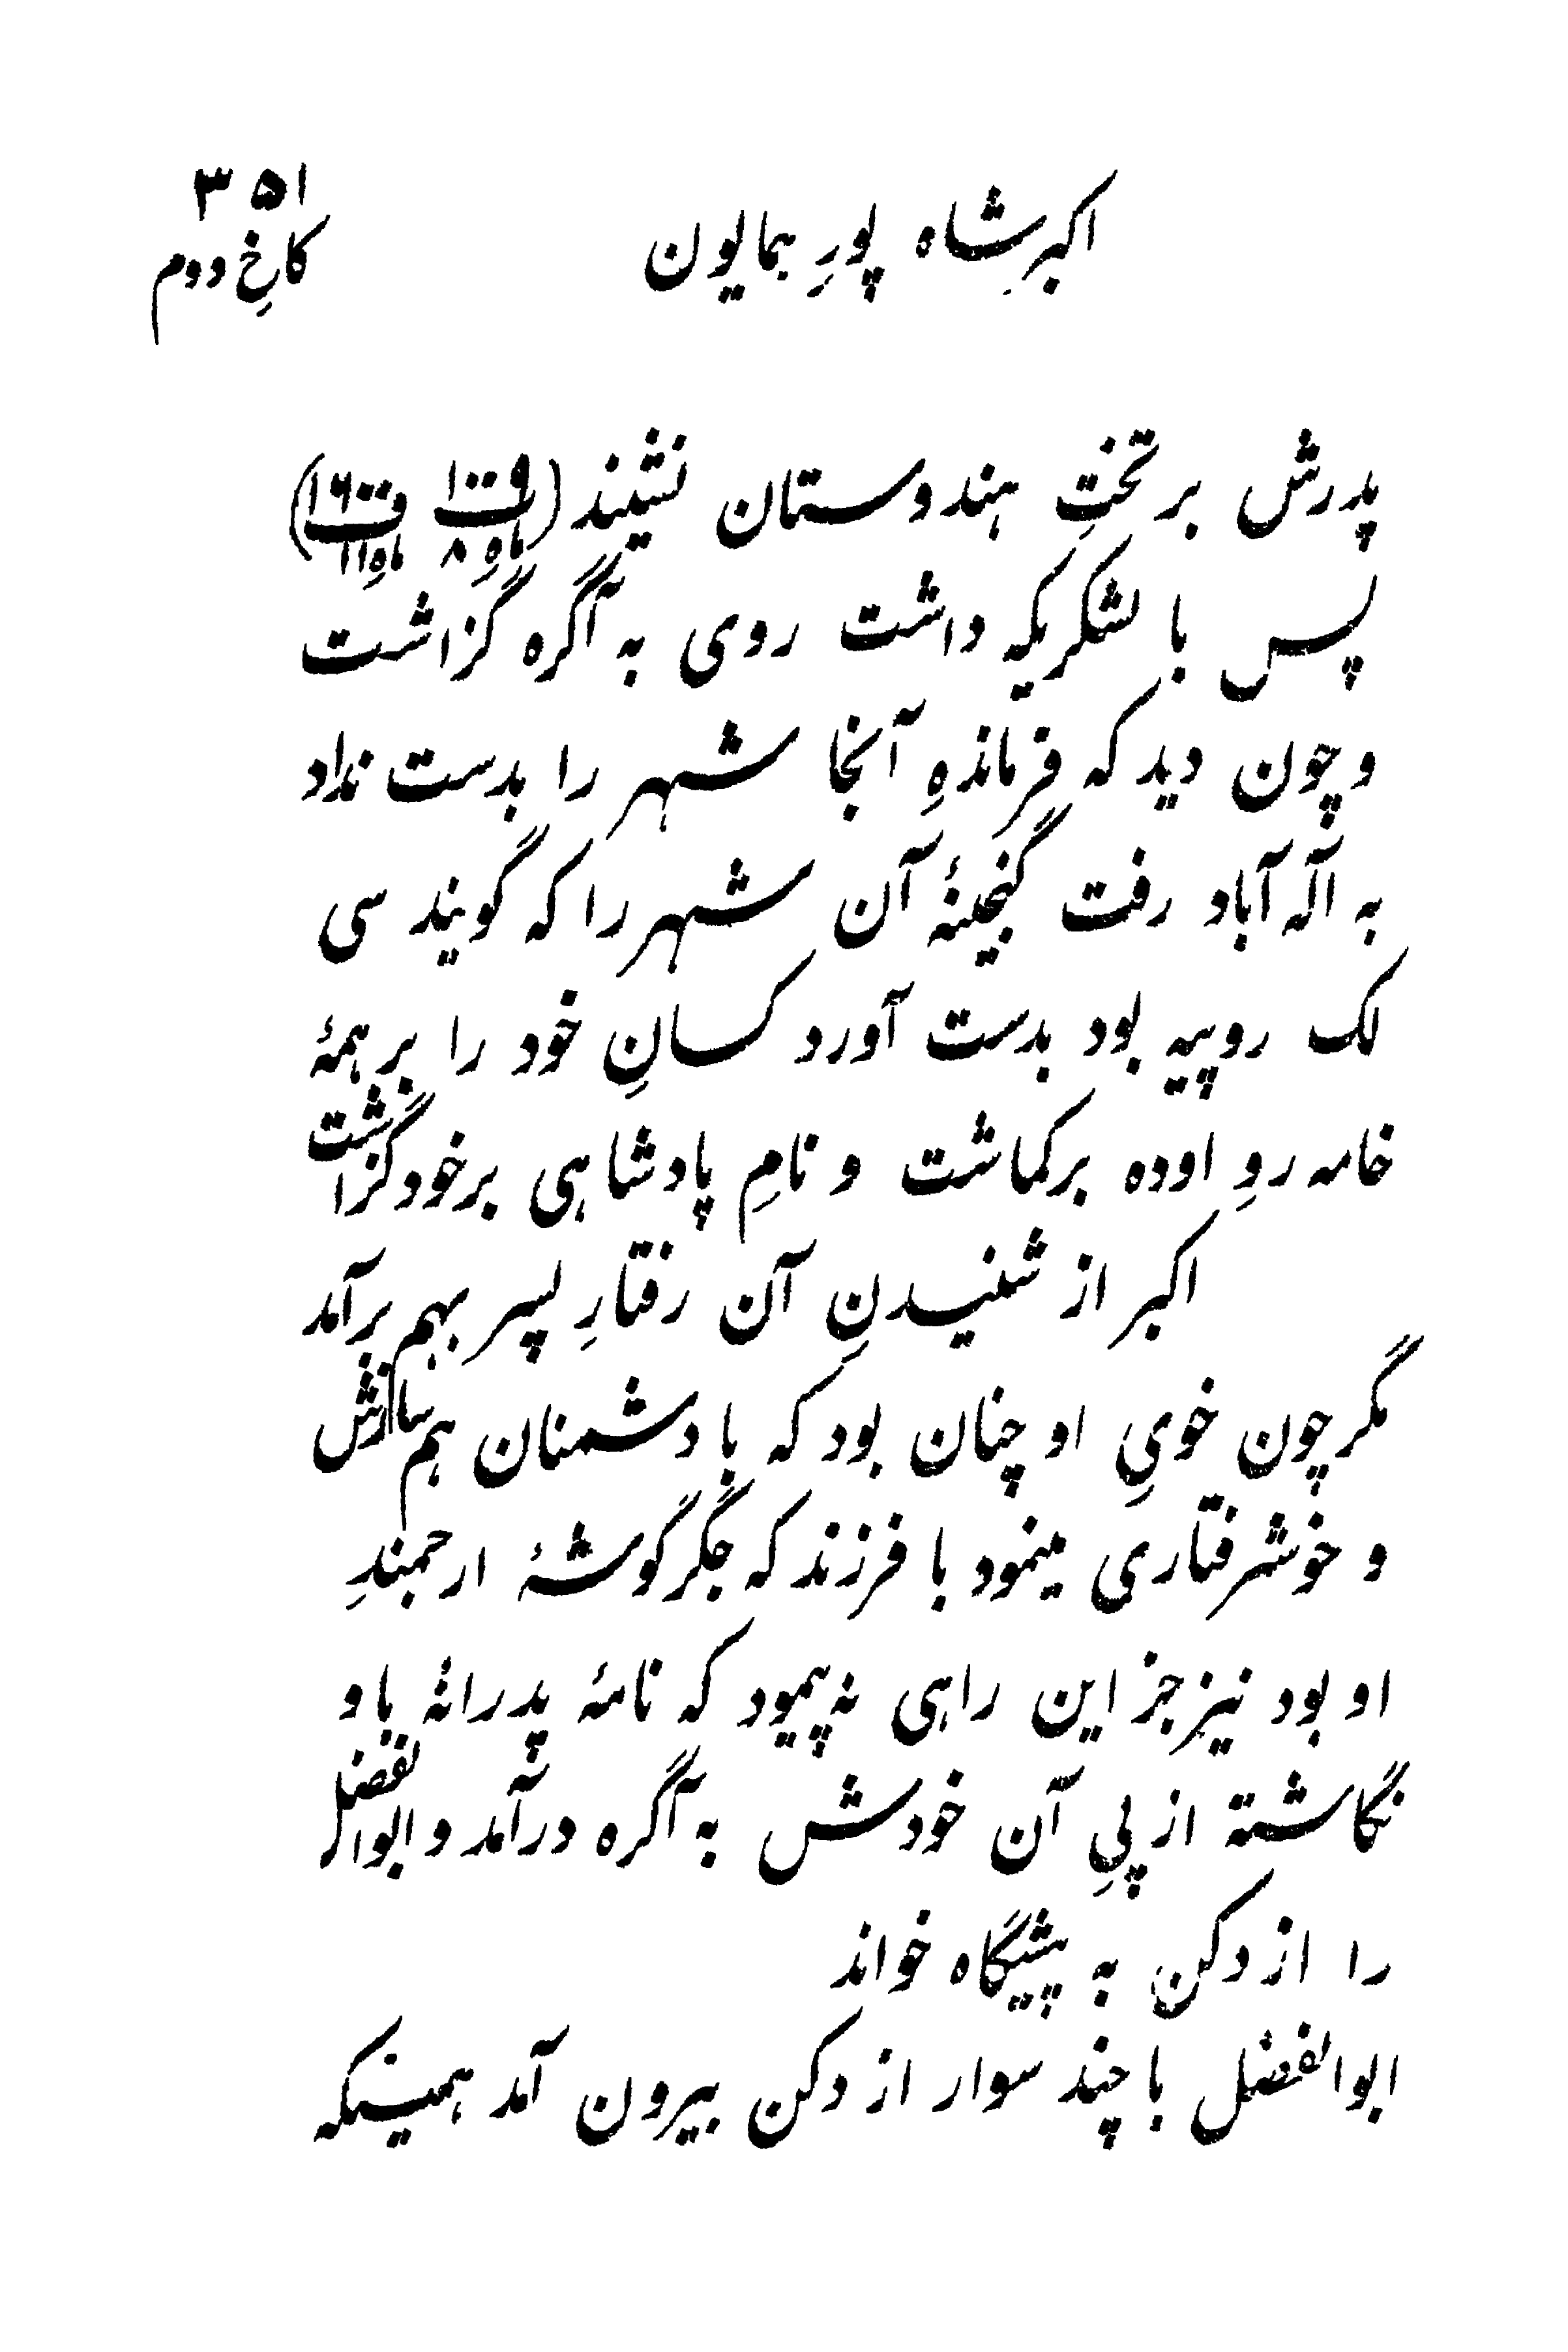 ۳۵۱
اکبرشاه پورِ همایون
کاخِ دوم
پدرش بر تختِ هندوستان نشیند (
پس با لشکریکه داشت روی به آگره گزاشت
و چون دید که فرماندهِ آنجا شهر را بدست نداد
به اله آباد رفت گنجینهٔ آن شهر را که گویند سی
لک روپیه بود بدست آورد کسانِ خود را بر همهٔ
خامه روِ اوده برگماشت و نامِ پادشاهی برخود گزاشت
اکبر از شنیدنِ آن رفتارِ پسر بهم برآمد
مگر چون خویِ او چنان بود که با دشمنان هم سازش
و خوشرفتاری مینمود با فرزند که جگر گوشهٔ ارجمندِ
او بود نیز جز این راهی نه پیمود که نامهٔ پدرانهٔ باو
نگاشته از پیِ آن خودش به آگره درآمد و ابوالفضل
را از دکن به پیشگاه خواند
ابوالفضل با چند سوار از دکن بیرون آمد همینکه